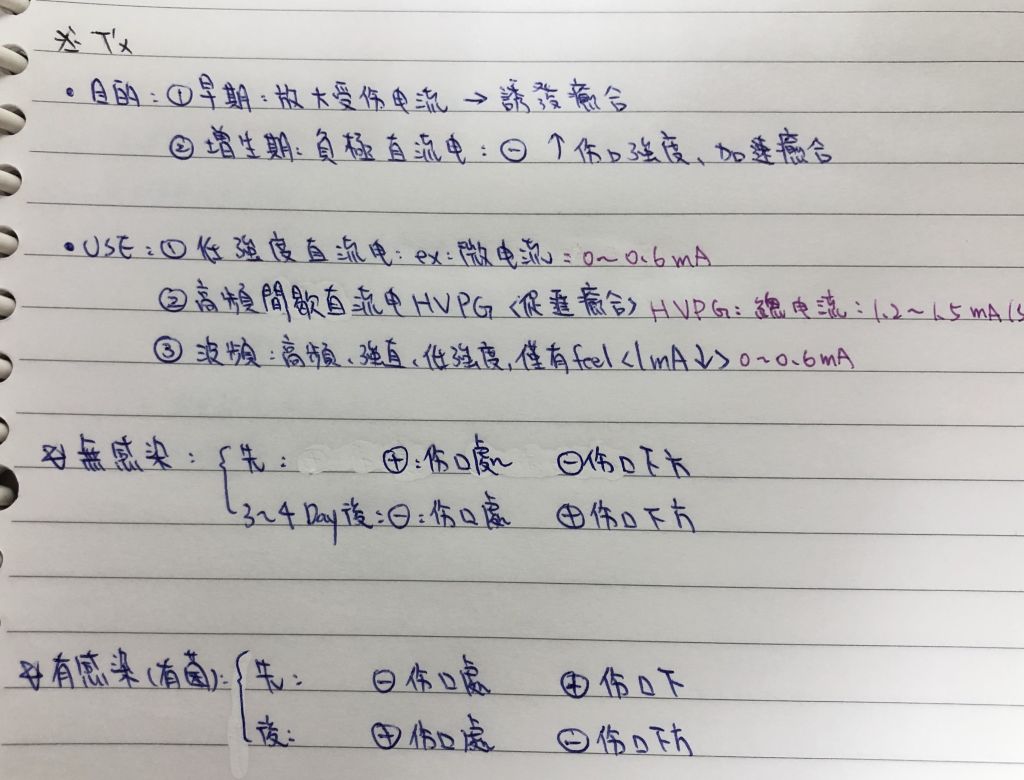 ※ T'x
• 目的：① 早期：放大受伤电流 → 誘發癒合
② 增生期：負極直流电：⊖ ↑伤口強度、加速癒合
• USE：① 低強度直流电：ex：微电流：0~0.6mA
② 高頻間歇直流电 HVPG〈促進癒合〉HVPG：總电流：1.2~1.5mA(
③ 波頻：高頻、強直、低強度，僅有feel <1mA↓> 0~0.6mA
無感染：先： ⊕：伤口處 ⊖伤口下方
3~4 Day後：⊖：伤口處 ⊕ 伤口下方
有感染(有菌)：先： ⊖ 伤口處 ⊕ 伤口下
後： ⊕ 伤口處 ⊖ 伤口下方